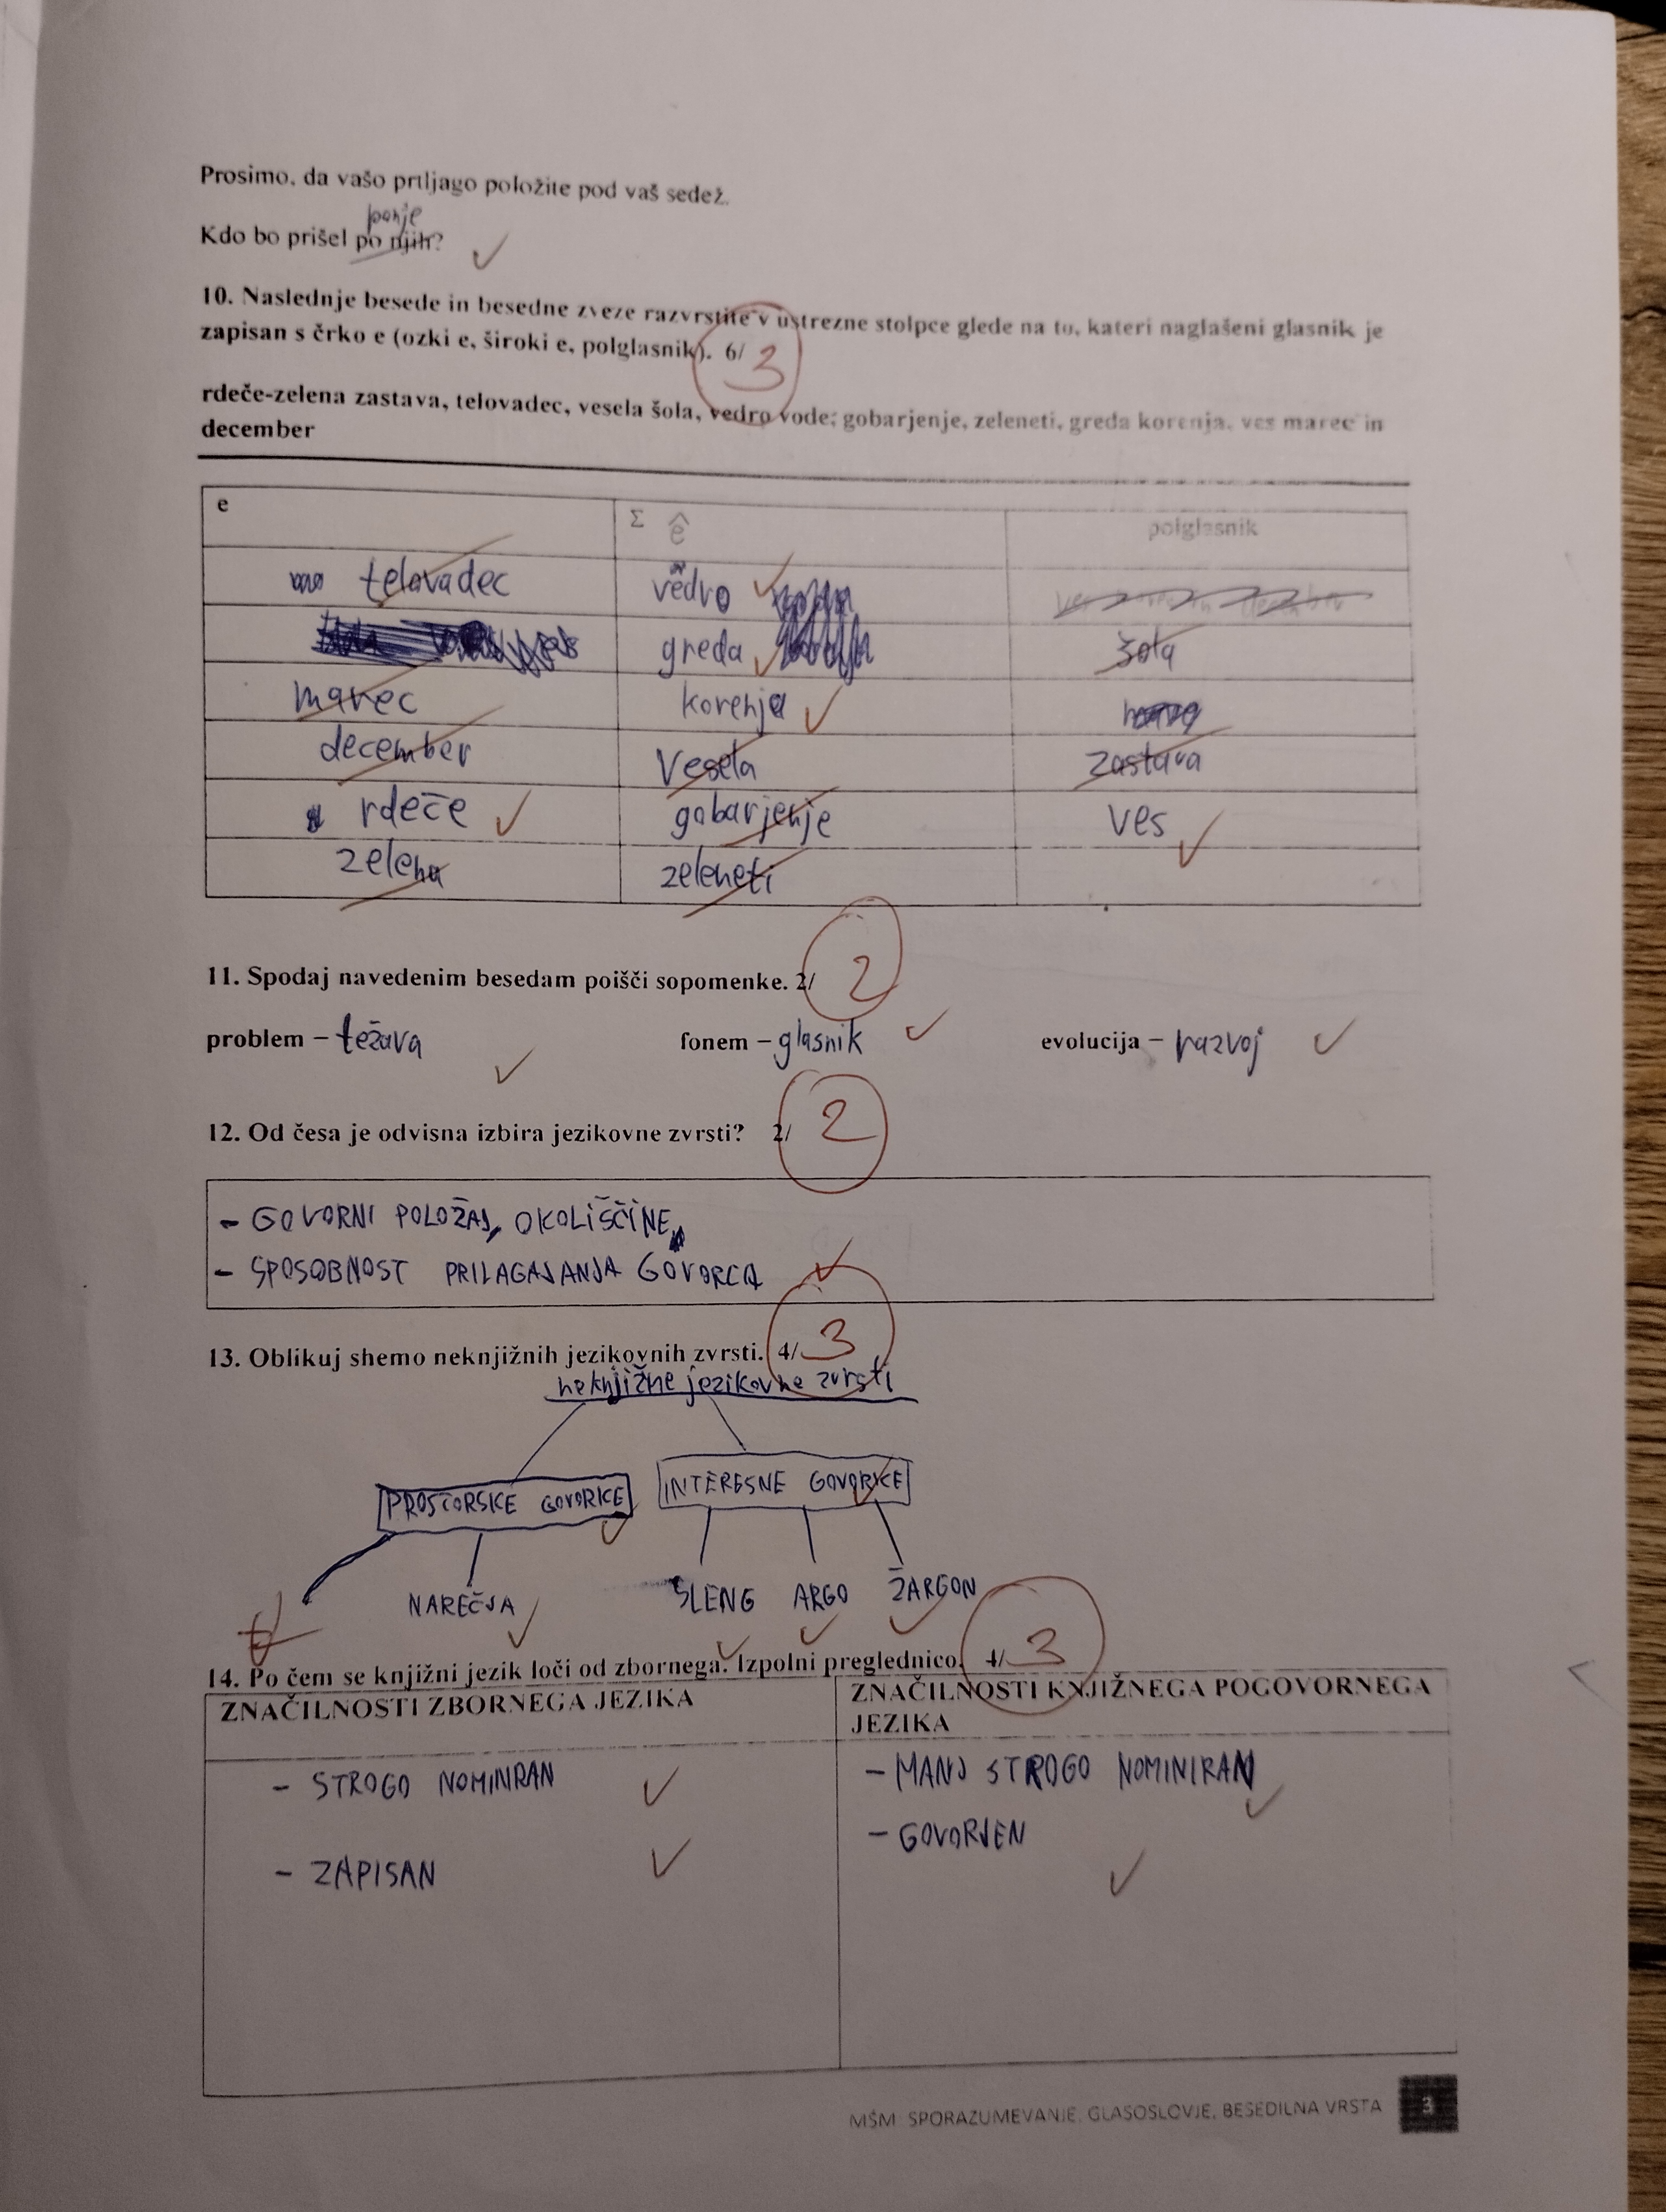 Prosimo, da vašo prtljago položite pod vaš sedež.
ponje
Kdo bo prišel po njih?
10. Naslednje besede in besedne zveze razvrstite v ustrezne stolpce glede na to, kateri naglašeni glasnik je
zapisan s črko e (ozki e, široki e, polglasnik). 6/ 3
rdeče-zelena zastava, telovadec, vesela šola, vedro vode; gobarjenje, zeleneti, greda korenja, ves marec in
december
e Σ ê polglasnik
telovadec vedro
greda šola
marec korenja
december vesela zastava
rdeče gobarjenje ves
zelena zeleneti
11. Spodaj navedenim besedam poišči sopomenke. 2/ 2
problem – težava fonem – glasnik evolucija – razvoj
12. Od česa je odvisna izbira jezikovne zvrsti? 2/ 2
- GOVORNI POLOŽAJ, OKOLIŠČINE
- SPOSOBNOST PRILAGAJANJA GOVORCA
13. Oblikuj shemo neknjižnih jezikovnih zvrsti. 4/ 3
neknjižne jezikovne zvrsti
PROSTORSKE GOVORICE INTERESNE GOVORICE
NAREČJA SLENG ARGO ŽARGON
14. Po čem se knjižni jezik loči od zbornega. Izpolni preglednico. 4/ 3
ZNAČILNOSTI ZBORNEGA JEZIKA ZNAČILNOSTI KNJIŽNEGA POGOVORNEGA
JEZIKA
- STROGO NOMINRAN - MANJ STROGO NOMINIRAN
- GOVORJEN
- ZAPISAN
MŠM: SPORAZUMEVANJE, GLASOSLOVJE, BESEDILNA VRSTA 3